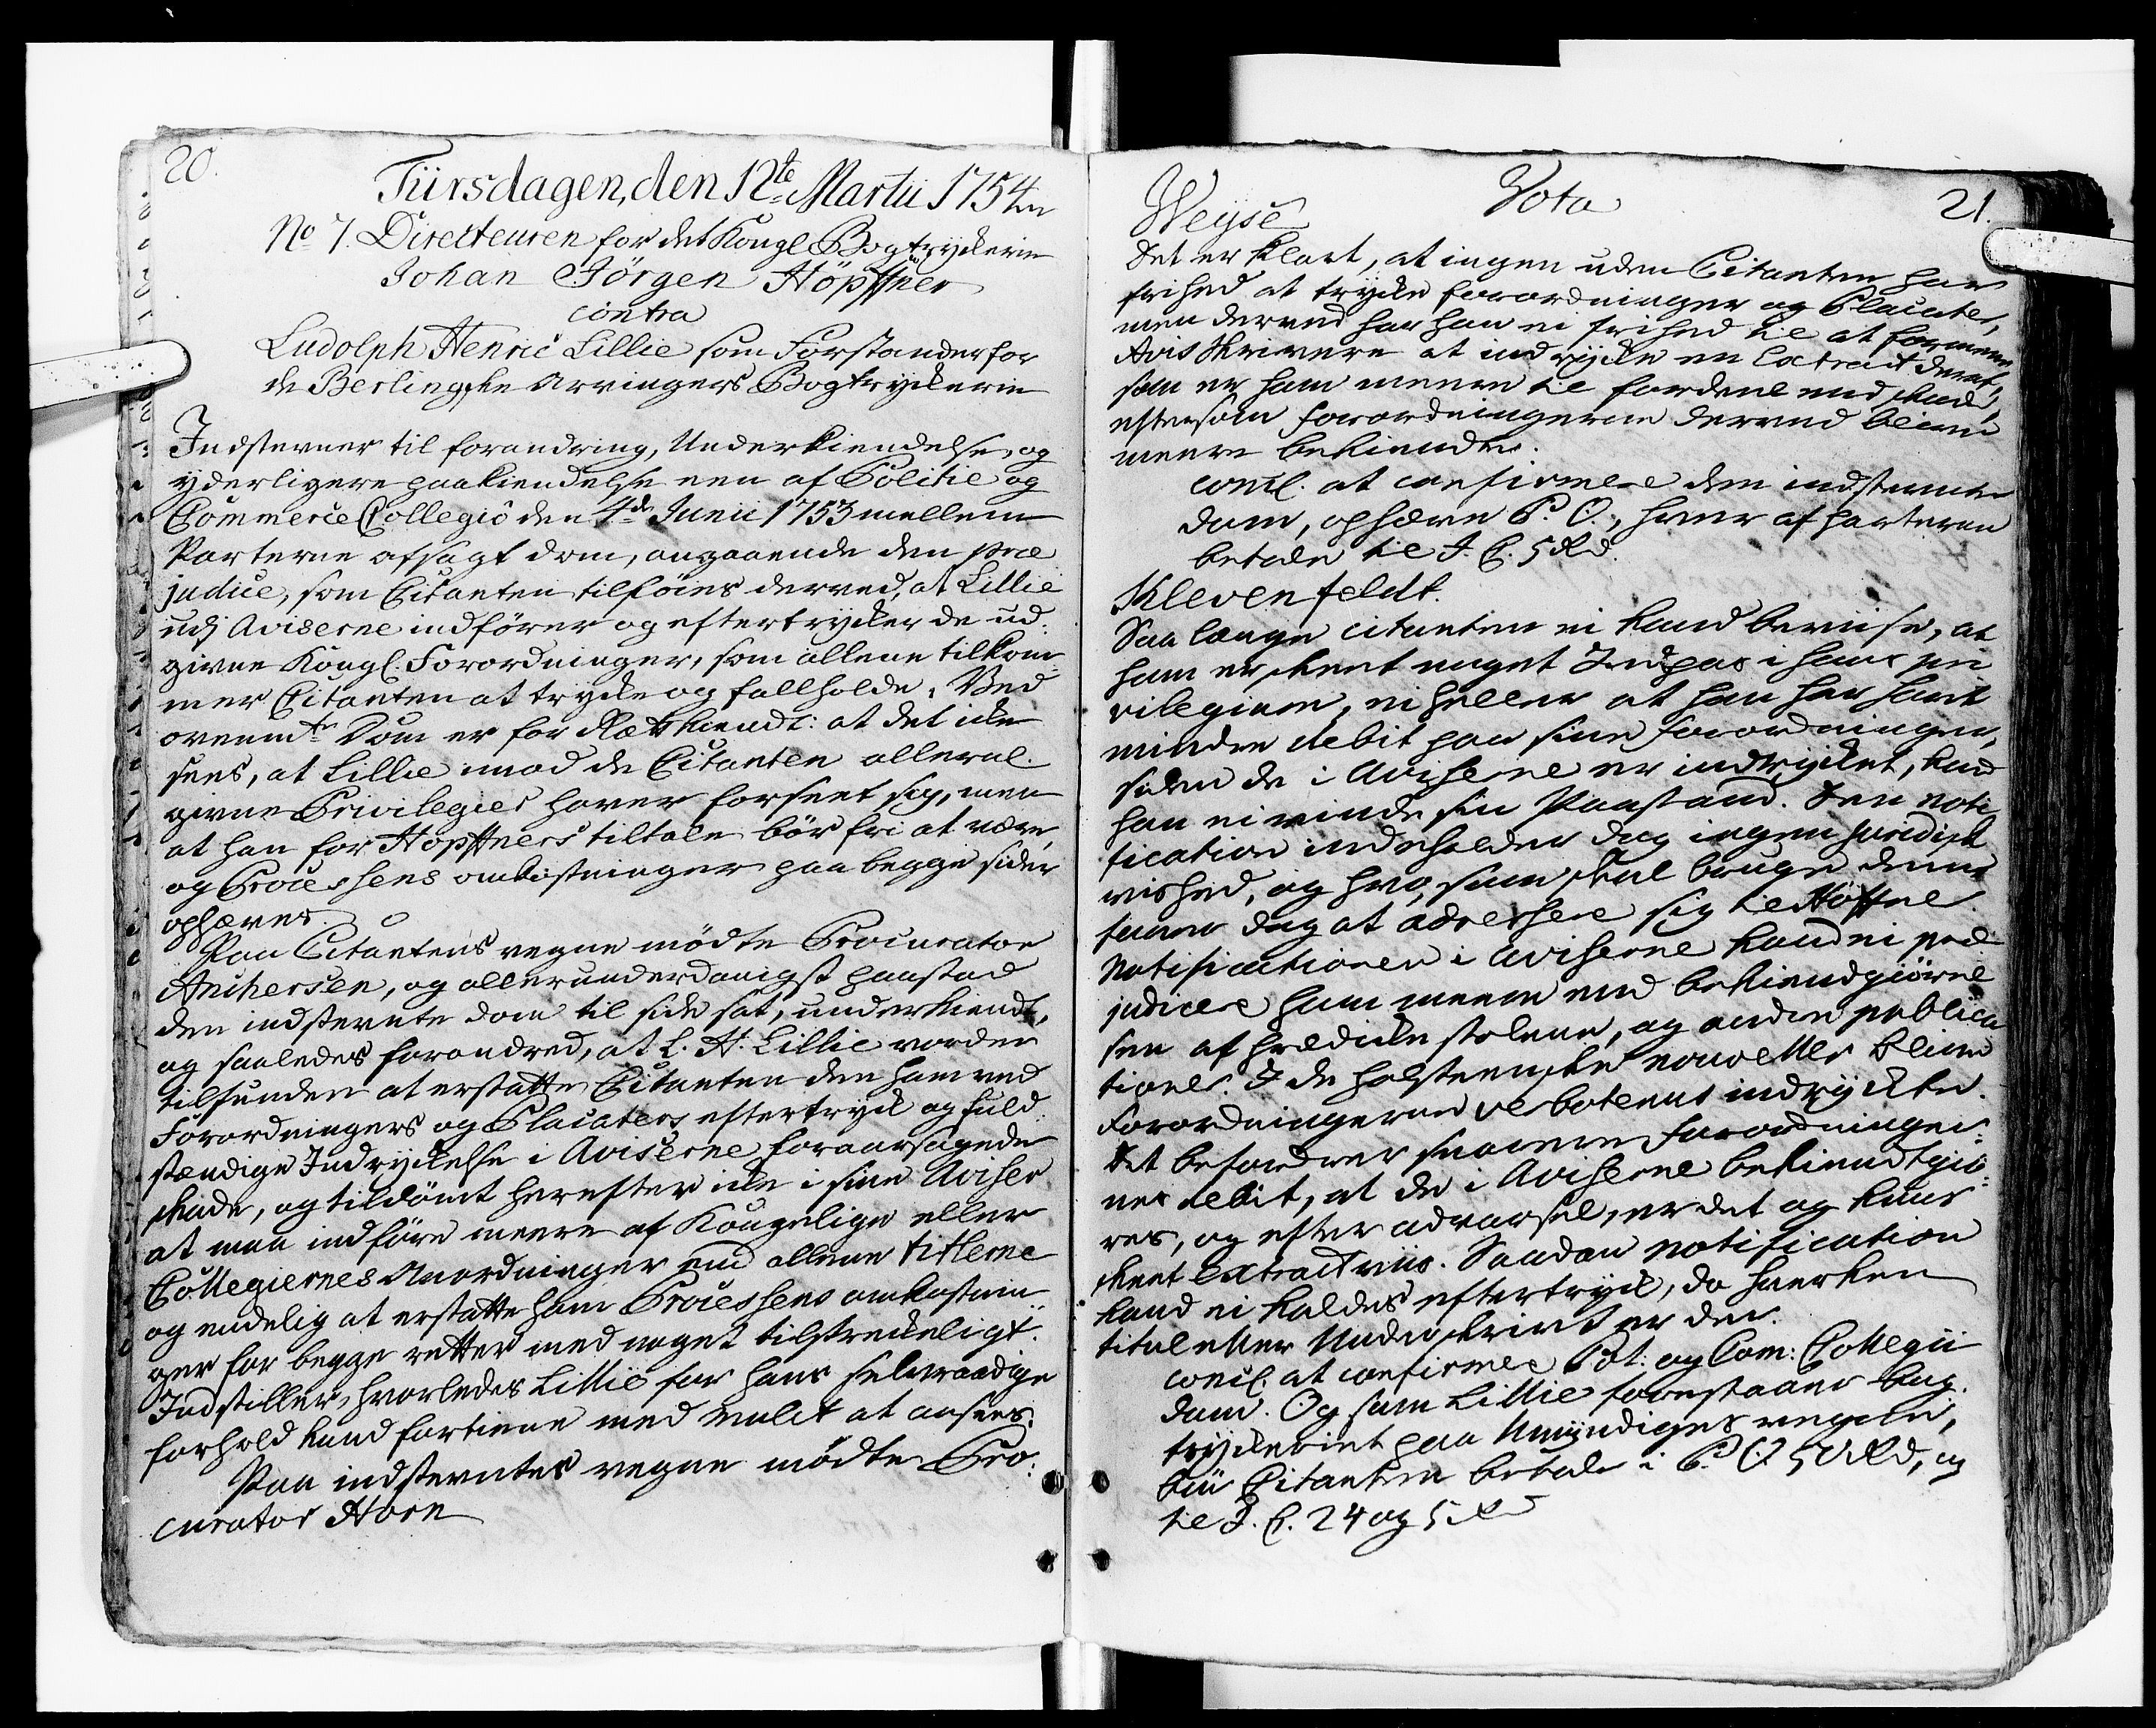 20.
Tiirsdagen, den 12te Martii 1754
No 7. Directeuren for det Kongl Bogtrykkerie
Johan Jörgen Höpffner
contra
Ludolph Henric Lillie som Forstander for
de Berlingske Arvingers Bogtrykkerie
Indstevner til forandring, Underkiendelse, og
yderligere paakiendelse een af Politie og
Commerce Collegio den 4de Junii 1753 mellem
Parterne afsagt dom, angaaende den præ
judice, som Citanten tilföies derved, at Lillie
udj Aviserne indförer og eftertrykker de ud-
givne Kongl. Forordninger, som allene tilkom-
mer Citanten at trykke og fallholde. Ved
ovenmte Dom er for Ret kiendt: at det ikke
sees, at Lillie imod de Citanten allernd.
givne Privilegier haver forseet sig, men
at han for Höpffners tiltale bör fri at være,
og Processens omkostninger paa begge sider
ophæves.
Paa Citantens vegne mödte Procurator
Anchersen, og allerunderdanigst paastod
den indstevnte dom til side sat, underkiendt,
og saaledes forandred, at L. H. Lillie vorder
tilfunden at erstatte Citanten den ham ved
Forordningers og Placaters eftertryk og fuld-
stændige Indrykkelse i Aviserne foraarsagede
skade, og tildömt herefter ikke i sine Aviser
at maa indföre meere af Kongelige eller
Collegiernes Anordninger end allene titlerne
og endelig at erstatte ham Processens omkostnin-
ger for begge retter med noget tilstrekkeligt.
Indstiller, hvorledes Lillie for hans selvraadige
forhold kand fortiene med mulct at ansees.
Paa indstevntes vegne mödte Pro-
curator Horn
Vota
21.
Weyse
Det er klart, at ingen uden Citanten har
frihed at trykke forordninger og Placater,
men derved har han ei frihed til at formene
Avis Skrivere at indrykke en Extract deraf,
som er ham meere til fordeel end skade,
eftersom forordningerne derved bliver
meere bekiendte.
concl. at confirmere den indstevnte
dom, ophæve P. O., hver af parterne
betale til J. C. 5 Rd.
Klevenfeldt.
Saa længe citanten ei kand beviise, at
ham er skeet noget Indpas i hans pri
vilegium, ei heller at han har havt
mindre debit paa sine forordninger,
siden de i Aviserne er indrykket, kand
han ei vinde sin Paastand. Den noti
fication indeholder dog ingen juridisk
vished, og hvo, som skal bruge denne
faaer dog at adressere sig til Höffner
Notificationen i Aviserne kand ei præ
judicere ham meere end bekiendgiörel
sen af prædikestolene, og andre publica
tioner. I de holsteenske nouveller bliver
Forordningerne verbotenus indrykket.
Det befordrer snarere forordninger-
nes debit, at de i Aviserne bekiendtgiö-
res, og efter advarsel, er det og kuns
skeet Extractviis. Saadan notification
kand ei kaldes eftertryk, da hverken
titul eller Underskrivt er der.
concl. at confirmere Pol: og Com: Collegii
dom. Og som Lillie forestaaer bog-
trykkeriet paa Umyndiges vegne,
bör Citanten betale i P. O. 50 Rd, og
til J. C. 24 og 5 Rd